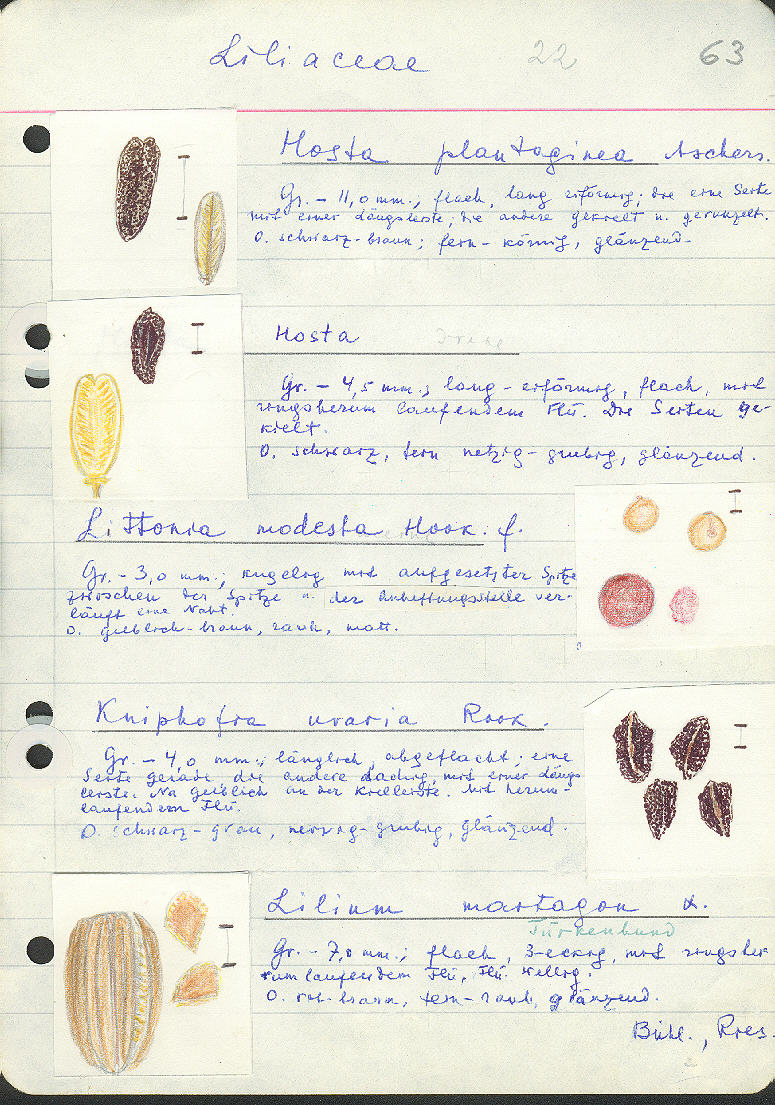 Liliaceae 22 63
Hosta plantaginea Aschers.
Gr. – 11,0 mm., flach, lang eiförmig; die eine Seite
mit einer Längsleiste; die andere gekielt u. gerunzelt.
O. schwarz-braun; fein-körnig, glänzend.
Hosta
Gr. – 4,5 mm.; lang-eiförmig, flach, mit
ringsherum laufendem Flü. Die Seiten ge-
kielt.
O. schwarz, fein netzig-grubig, glänzend.
Littonia modesta Hook. f.
Gr. – 3,0 mm.; kugelig mit aufgesetzter Spitze
zwischen der Spitze u. der Anheftungsstelle ver-
läuft eine Naht.
O. gelblich-braun, rauh, matt.
Kniphofia uvaria Hook.
Gr. – 4,0 mm.; länglich, abgeflacht; eine
Seite gerade die andere mit einer Längs
leiste. Na gelblich an der Kielleiste. Mit herum-
laufendem Flü.
O. schwarz-grau, netzig-grubig, glänzend.
Lilium martagon L.
Türkenbund
Gr. – 7,0 mm.; flach, 3-eckig, mit ringsher
um laufendem Flü, Flü. wellig.
O. rot-braun, fein-rauh, glänzend.
Bühl., Pres.